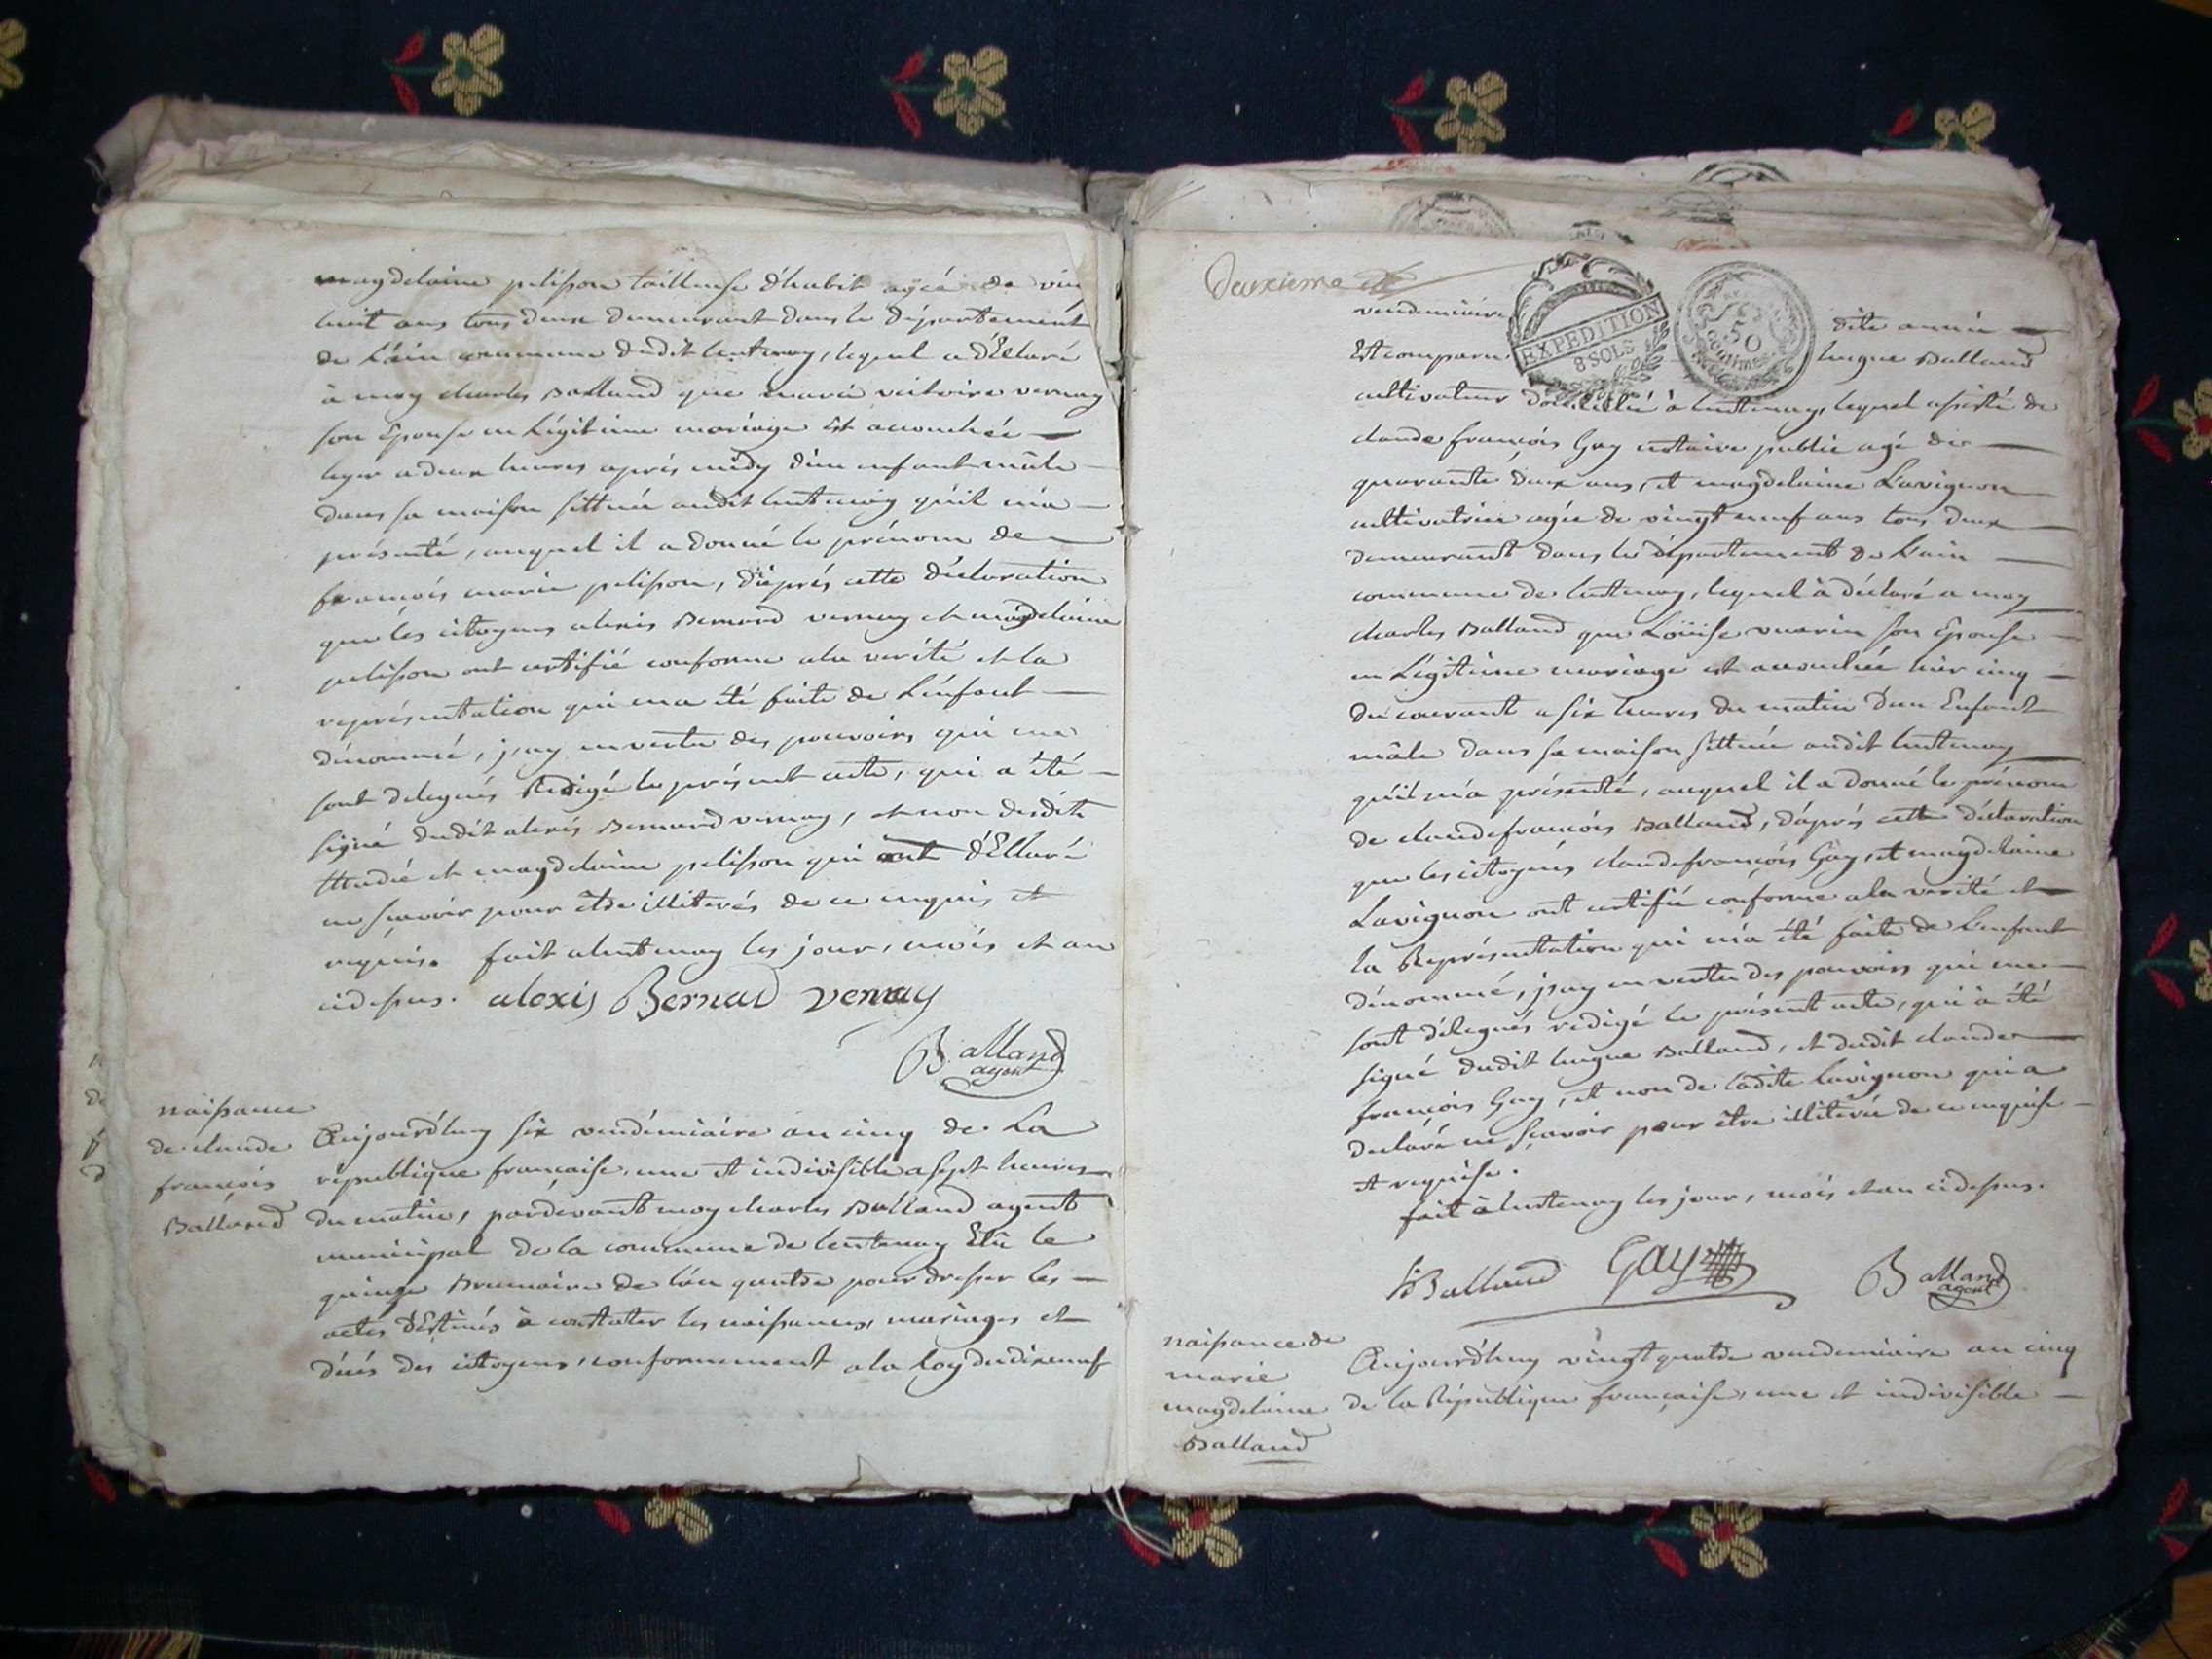 magdelaine pelisson tailleuse d'habit agée de vin
huit ans tous deux demeurant dans le département
de L'ain commune dudit lentenay, lequel a déClaré
à moy charles Balland que marie victoire vernay
son Epouse en Légitime mariage Est accouchée
hyer a deux heures aprés midy d'un enfant mâle
dans sa maison sittuée audit lentenay qu'il m'a
présenté, auquel il a donné le prénom de
françois marie pelisson, d'aprés cette déclaration
que les citoyens alexis Bernard vernay et magdelaine
pelisson ont certifié conforme a la verité et la
représentation qui ma été faite de L'enfant
dénommé, j'ay en vertu des pouvoirs qui me
sont delegués Redigé le présent acte, qui a été
signé dudit alexis Bernard vernay, et non desdits
et magdelaine pelisson qui ont déClaré
ne sçavoir pour être illiterés de ce enquis et
réquis. fait a lentenay les jour, mois et an
cidessus. alexis Bernard vernay
Balland
agent
naissance
de claude
françois
Balland
Aujourd'huy six vendémiaire an cinq de La
république française, une et indivisible a sept heures
du matin, pardevant moy charles Balland agent
municipal de la commune de lentenay Elû le
quinze Brumaire de l'an quatre pour dresser les
actes déstinés à constater les naissances, mariages et
décés des citoyens, conformement a la loy du dixneuf
Deuxieme
vendemiaire dite année
Est comparu hugue Balland
cultivateur domicilié à lentenay, lequel assisté de
claude françois Gay notaire public agé de
quarante deux ans, et magdelaine Lavignon
cultivatrice agée de vingt neuf ans tous deux
demeurant dans le département de L'ain
commune de lentenay, lequel à déclaré a moy
charles Balland que Loüise vuarin son Epouse
en Légitime mariage est accouchée hier cinq
du courant a six heures du matin d'un Enfant
mâle dans sa maison sittuée audit lentenay
qu'il m'a présenté, auquel il a donné le prénom
de claude françois Balland, d'aprés cette déclaration
que les citoyens claude françois Gay, et magdelaine
Lavignon ont certifié conforme a la verité et
la Représentation qui m'a été faite de L'enfant
dénommé, j'ay en vertu des pouvoirs qui me
sont délegués redigé le présent acte, qui à été
signé dudit hugue Balland, et dudit claude
françois Gay, et non de ladite lavignon qui a
declaré ne sçavoir pour être illiterée de ce enquise
et requise.
fait à lentenay les jour, mois et an cidessus.
hBalland Gay Balland
agent
naissance de
marie
magdelaine
Balland
Aujourd'huy vingt quatre vendemiaire an cinq
de la République française, une et indivisible
EXPEDITION
8 SOLS
50
Centimes